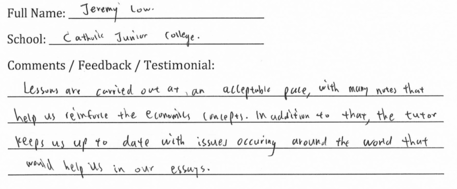 Full Name: Jeremy Low.
School: Catholic Junior College.
Comments / Feedback / Testimonial:
Lessons are carried out at an acceptable pace, with many notes that
help us reinforce the economics concepts. In addition to that, the tutor
keeps us up to date with issues occuring around the world that
would help us in our essays.